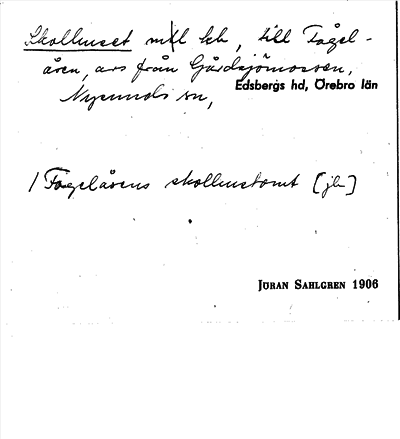 Skolhuset mtl lch, till Fågel-
åsen, avs från Gårdsjömossen,
Nysunds sn,
Edsbergs hd, Örebro län
/ Fogelåsens skolhustomt [jb]
JÖRAN SAHLGREN 1906